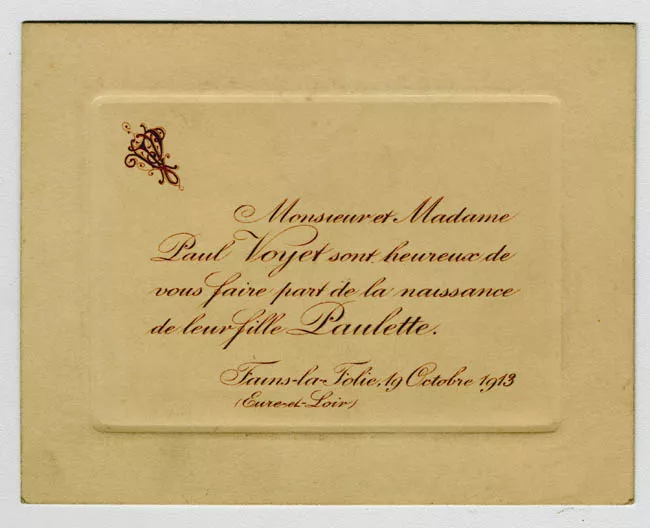 Monsieur et Madame
Paul Voyet sont heureux de
vous faire part de la naissance
de leur fille Paulette.
Fains-la-Folie, 19 Octobre 1913
(Eure-et-Loir)